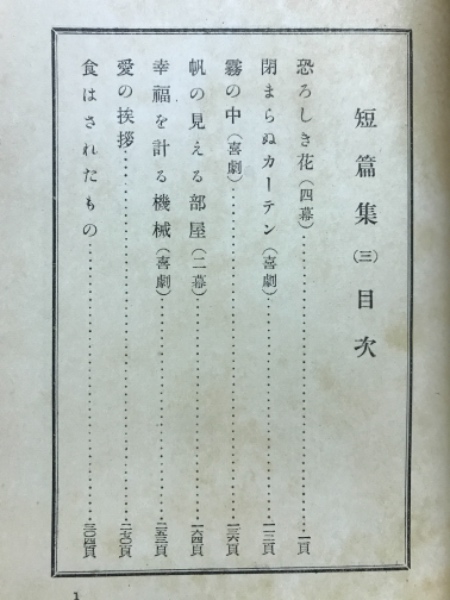 短篇集(三)目次
恐ろしき花(四幕)……一頁
閉まらぬカーテン(喜劇)……一一二頁
霧の中(喜劇)……一三六頁
帆の見える部屋(二幕)……一六四頁
幸福を計る機械(喜劇)……二五三頁
愛の挨拶……二七〇頁
食はされたもの……三〇四頁
1